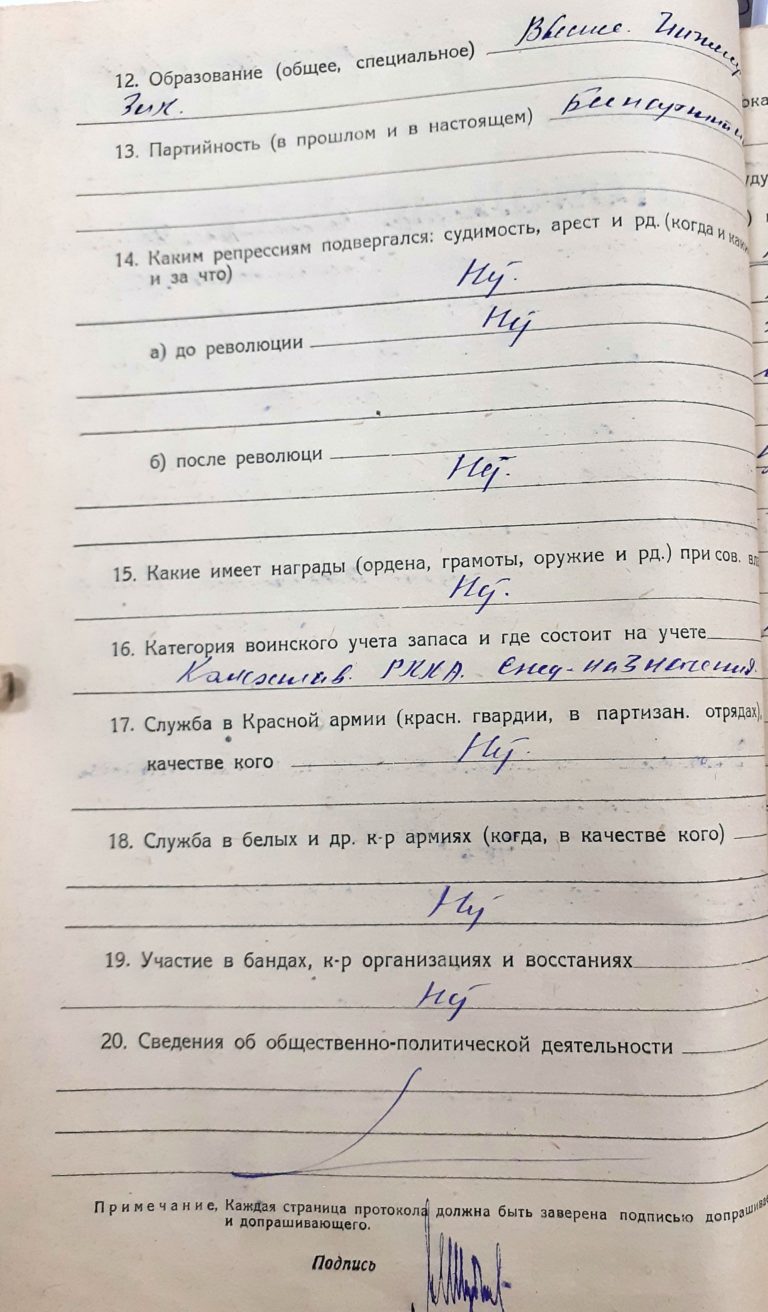 12. Образование (общее, специальное) Высше. Инжинер
13. Партийность (в прошлом и в настоящем) Беспартийн
14. Каким репрессиям подвергался: судимость, арест и рд. (когда и как
и за что) Нет.
а) до революции Нет
б) после революци Нет.
15. Какие имеет награды (ордена, грамоты, оружие и рд.) при сов. вл
Нет.
16. Категория воинского учета запаса и где состоит на учете
РККА. Спец-назначения.
17. Служба в Красной армии (красн. гвардии, в партизан. отрядах),
качестве кого Нет.
18. Служба в белых и др. к-р армиях (когда, в качестве кого)
Нет
19. Участие в бандах, к-р организациях и восстаниях
Нет
20. Сведения об общественно-политической деятельности
Примечание, Каждая страница протокола должна быть заверена подписью допрашивае
и допрашивающего.
Подпись